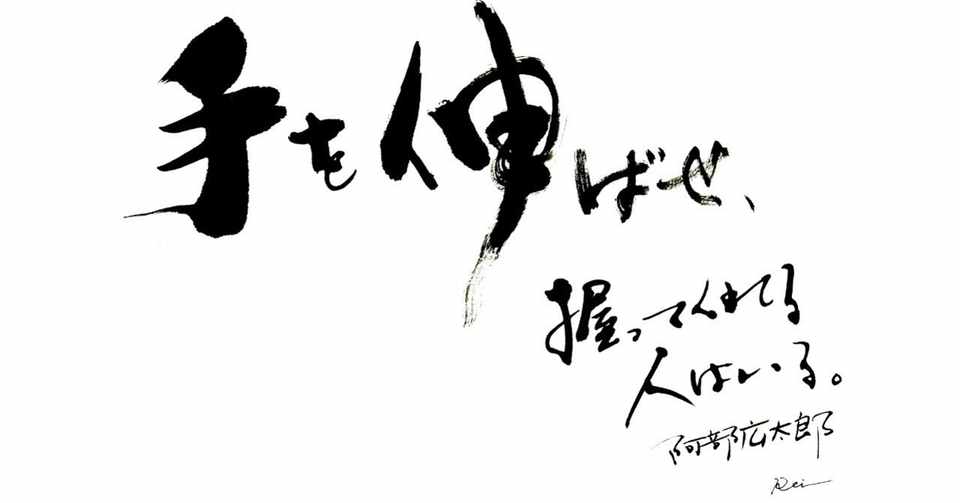 手を伸ばせ、
握ってくれてる
人はいる。
阿部広太郎
Rei